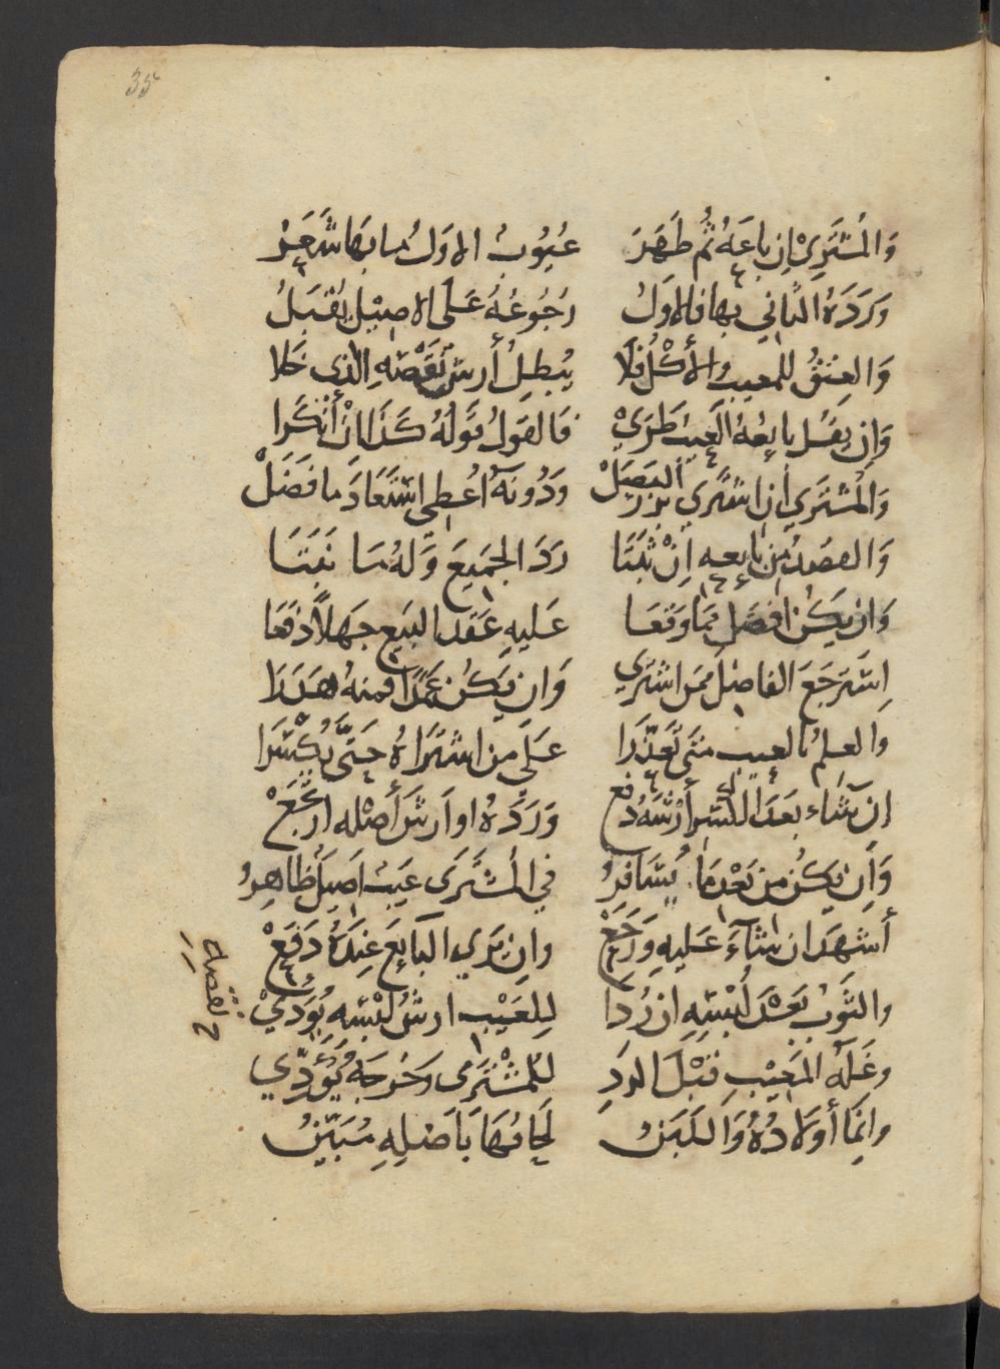 35
وَالْمُشْتَرِيْ اِن بَاعَهُ ثُمَّ ظَهَرَ عُيُوْبُ الاوَلُ ما بهَا شَعَرْ
وَرَدَهُ الثاني بها فالاوَلُ رُجُوعُهُ عَلَى الاصِيْلِ يُقْبَلُ
وَالعِتْقُ للمعيب والأكْلُ فَلَا يُبطِلُ أرشَ نَقْصِهِ الذي خَلا
وَاِن يقل بايعهُ العَيبُ طَرَيْ فالقولُ قَولُهُ كَذَا اِنْ أنكَرا
وَالْمُشْتَرِي اِن اشترَي بزر البَصَلْ وَدُونَهُ اُعْطِي اسْتَعَادَ ما فَضَلْ
وَالعصدُ من بايعه اِنْ ثبَتَا رَدَ الجَمِيعَ وَلهُ مَا نَبَتَا
وَان يَكُن افضَل مما وَقَعَا عَليهِ عَقدُ البَيع جَهلاً دَفعَا
اِسْتَرجَعَ الفاضِلَ ممن اشتري وَان يَكُن عَمْدًا فمنهُ هَدَرَا
وَالعلمُ بالعيب متى تعَذّرَا عَلى من اشتراهُ حَتَّى يُكْسَرَا
اِن شَاءَ بعدَ الكسر أرْشَهُ دفع وَرَدَهُ او اَرشَ أصْله ارتَجَعْ
وَاِن يَكُن من بَعْدِ مَا يُسَافِرُ في المُشْتَرَى عَيبٌ اَصِيلٌ ظاهِرُ
أشهَدَ ان شاءَ عَليهِ وَرَجَعْ وان يَري البَايعَ عِندَهُ دَفعْ
والثَوبُ بَعْدَ لُبْسِهِ اِن رُدا لِلعَيْبِ ارشُ لُبْسِهِ يُؤَديْ
وغَلّهُ المَعِيْبِ قبْلَ الردِ للمُشْتَرى وَخَرجَهُ يُؤَدِّي
وانما أولادُهُ وَاللَبَنُ لَحَاقهَا باَصْلِهِ مُبَيَّنُ